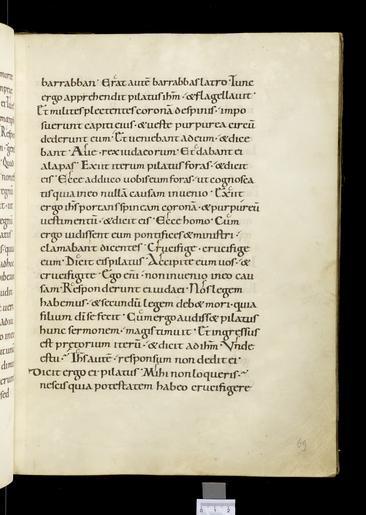 barrabban· Erat autē barrabbas latro· Tunc
ergo apprehendit pilatus ihm̄· & flagellauit·
Et milites plectentes coronā de spinis· impo
suerunt capiti eius· & ueste purpurea circū
dederunt eum· Et ueniebant ad eum· & dice
bant· Aue rex iudaeorum· Et dabant ei
alapas· Exiit iterum pilatus foras· & dicit
eis· Ecce adduco uobis eum foras· ut cognosca
tis quia in eo nullā causam inuenio· Exiit
ergo ihs portans spineam coronā· & purpureū
uestimentū· & dicit eis· Ecce homo· Cum
ergo uidissent eum pontifices & ministri·
clamabant dicentes· Crucifige· crucifige
eum· Dicit eis pilatus· Accipite eum uos· &
crucifigite· Ego eni· non inuenio in eo cau
sam· Responderunt ei iudaei· Nos legem
habemus· & secundū legem deb& mori· quia
filium dī se fecit· Cum ergo audiss& pilatus
hunc sermonem· magis timuit· Et ingressus
est pretorium iterū· & dicit ad ihm̄· Vnde
es tu· Ihs autē· responsum non dedit ei·
Dicit ergo ei pilatus· Mihi non loqueris·
nescis quia potestatem habeo crucifigere
69